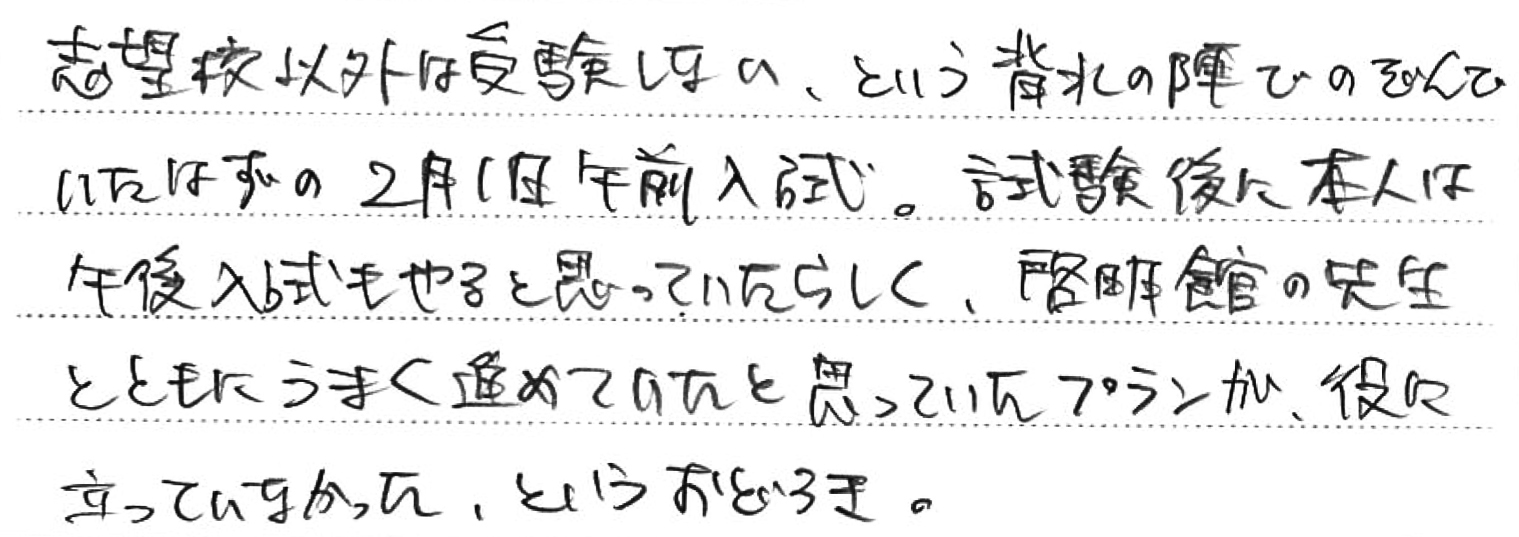 志望校以外は受験しない、という背水の陣でのぞんで
いたはずの2月1日午前入試。試験後に本人は
午後入試もやると思っていたらしく、啓明館の先生
とともにうまく進めていたと思っていたプランが、役に
立っていなかった、というおどろき。